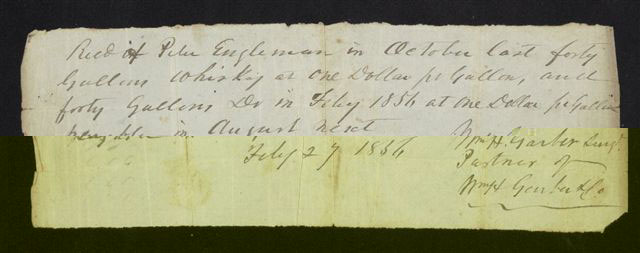 Recd of Peter Engleman in October last forty
Gallons Whisky at One Dollar pr Gallon, and
forty Gallons Do in Feby 1856 at one Dollar pr Gallon
payable in August next
Feby 27 1856
Wm H. Garber Surv.
Partner of
Wm H Garber & Co.